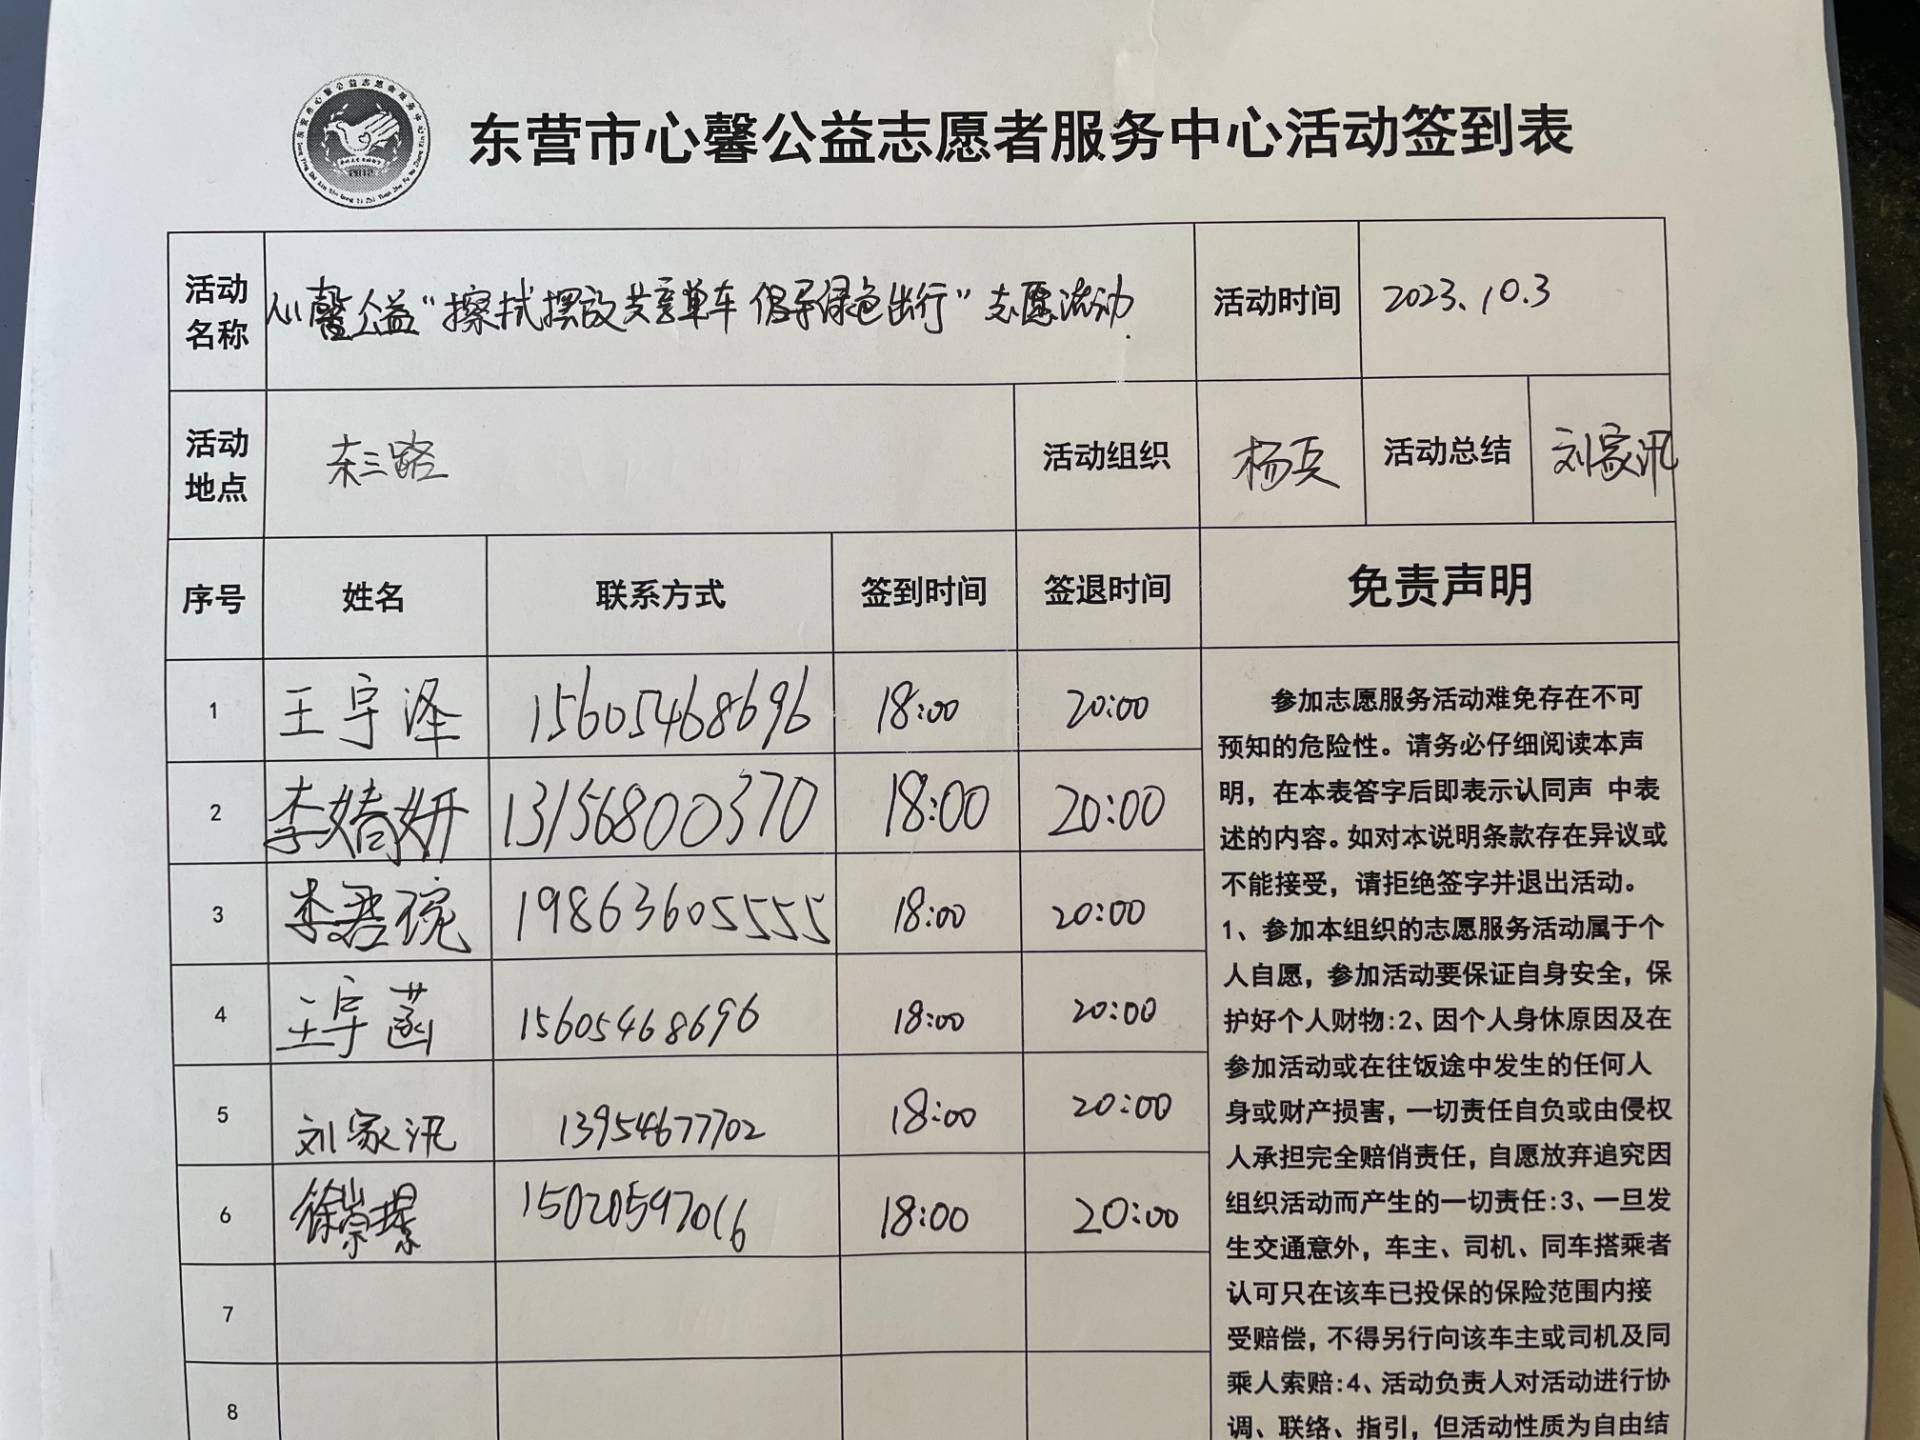 东营市心馨公益志愿者服务中心活动签到表
2012
活动名称
心馨公益“擦拭摆放共享单车 倡导绿色出行”志愿活动.
活动时间
2023.10.3
活动地点
东三路
活动组织
杨兵
活动总结
刘家汛
序号 姓名 联系方式 签到时间 签退时间 免责声明
1 王宇泽 15605468696 18:00 20:00
2 李婧妍 13156800370 18:00 20:00
3 李君琬 19863605555 18:00 20:00
4 王宇菡 15605468696 18:00 20:00
5 刘家汛 13954677702 18:00 20:00
6 徐崇 15020597016 18:00 20:00
7
8
参加志愿服务活动难免存在不可
预知的危险性。请务必仔细阅读本声
明，在本表答字后即表示认同声 中表
述的内容。如对本说明条款存在异议或
不能接受，请拒绝签字并退出活动。
1、参加本组织的志愿服务活动属于个
人自愿，参加活动要保证自身安全，保
护好个人财物:2、因个人身休原因及在
参加活动或在往饭途中发生的任何人
身或财产损害，一切责任自负或由侵权
人承担完全赔俏责任，自愿放弃追究因
组织活动而产生的一切责任:3、一旦发
生交通意外，车主、司机、同车搭乘者
认可只在该车已投保的保险范围内接
受赔偿，不得另行向该车主或司机及同
乘人索赔:4、活动负责人对活动进行协
调、联络、指引，但活动性质为自由结